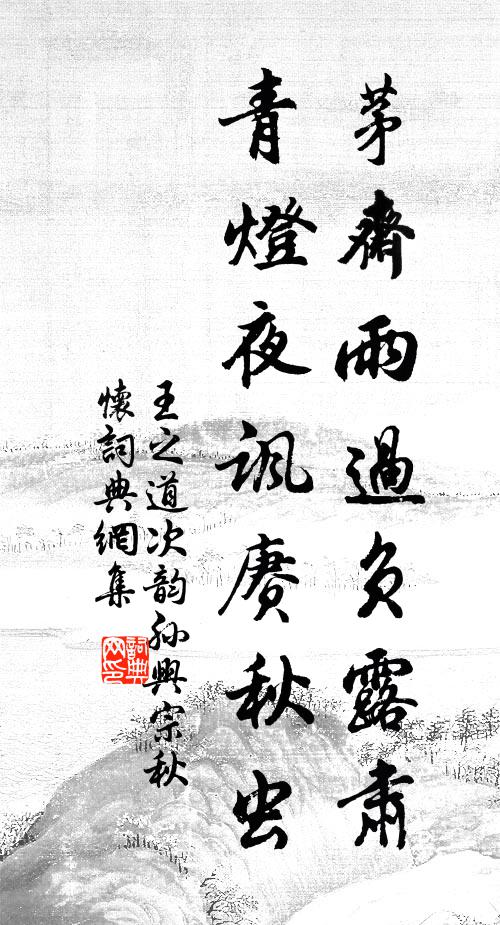 茅齋雨過露肅
青燈夜諷賡秋虫
王之道次韵孙興宗秋
懷詞典網集
詞典
网印